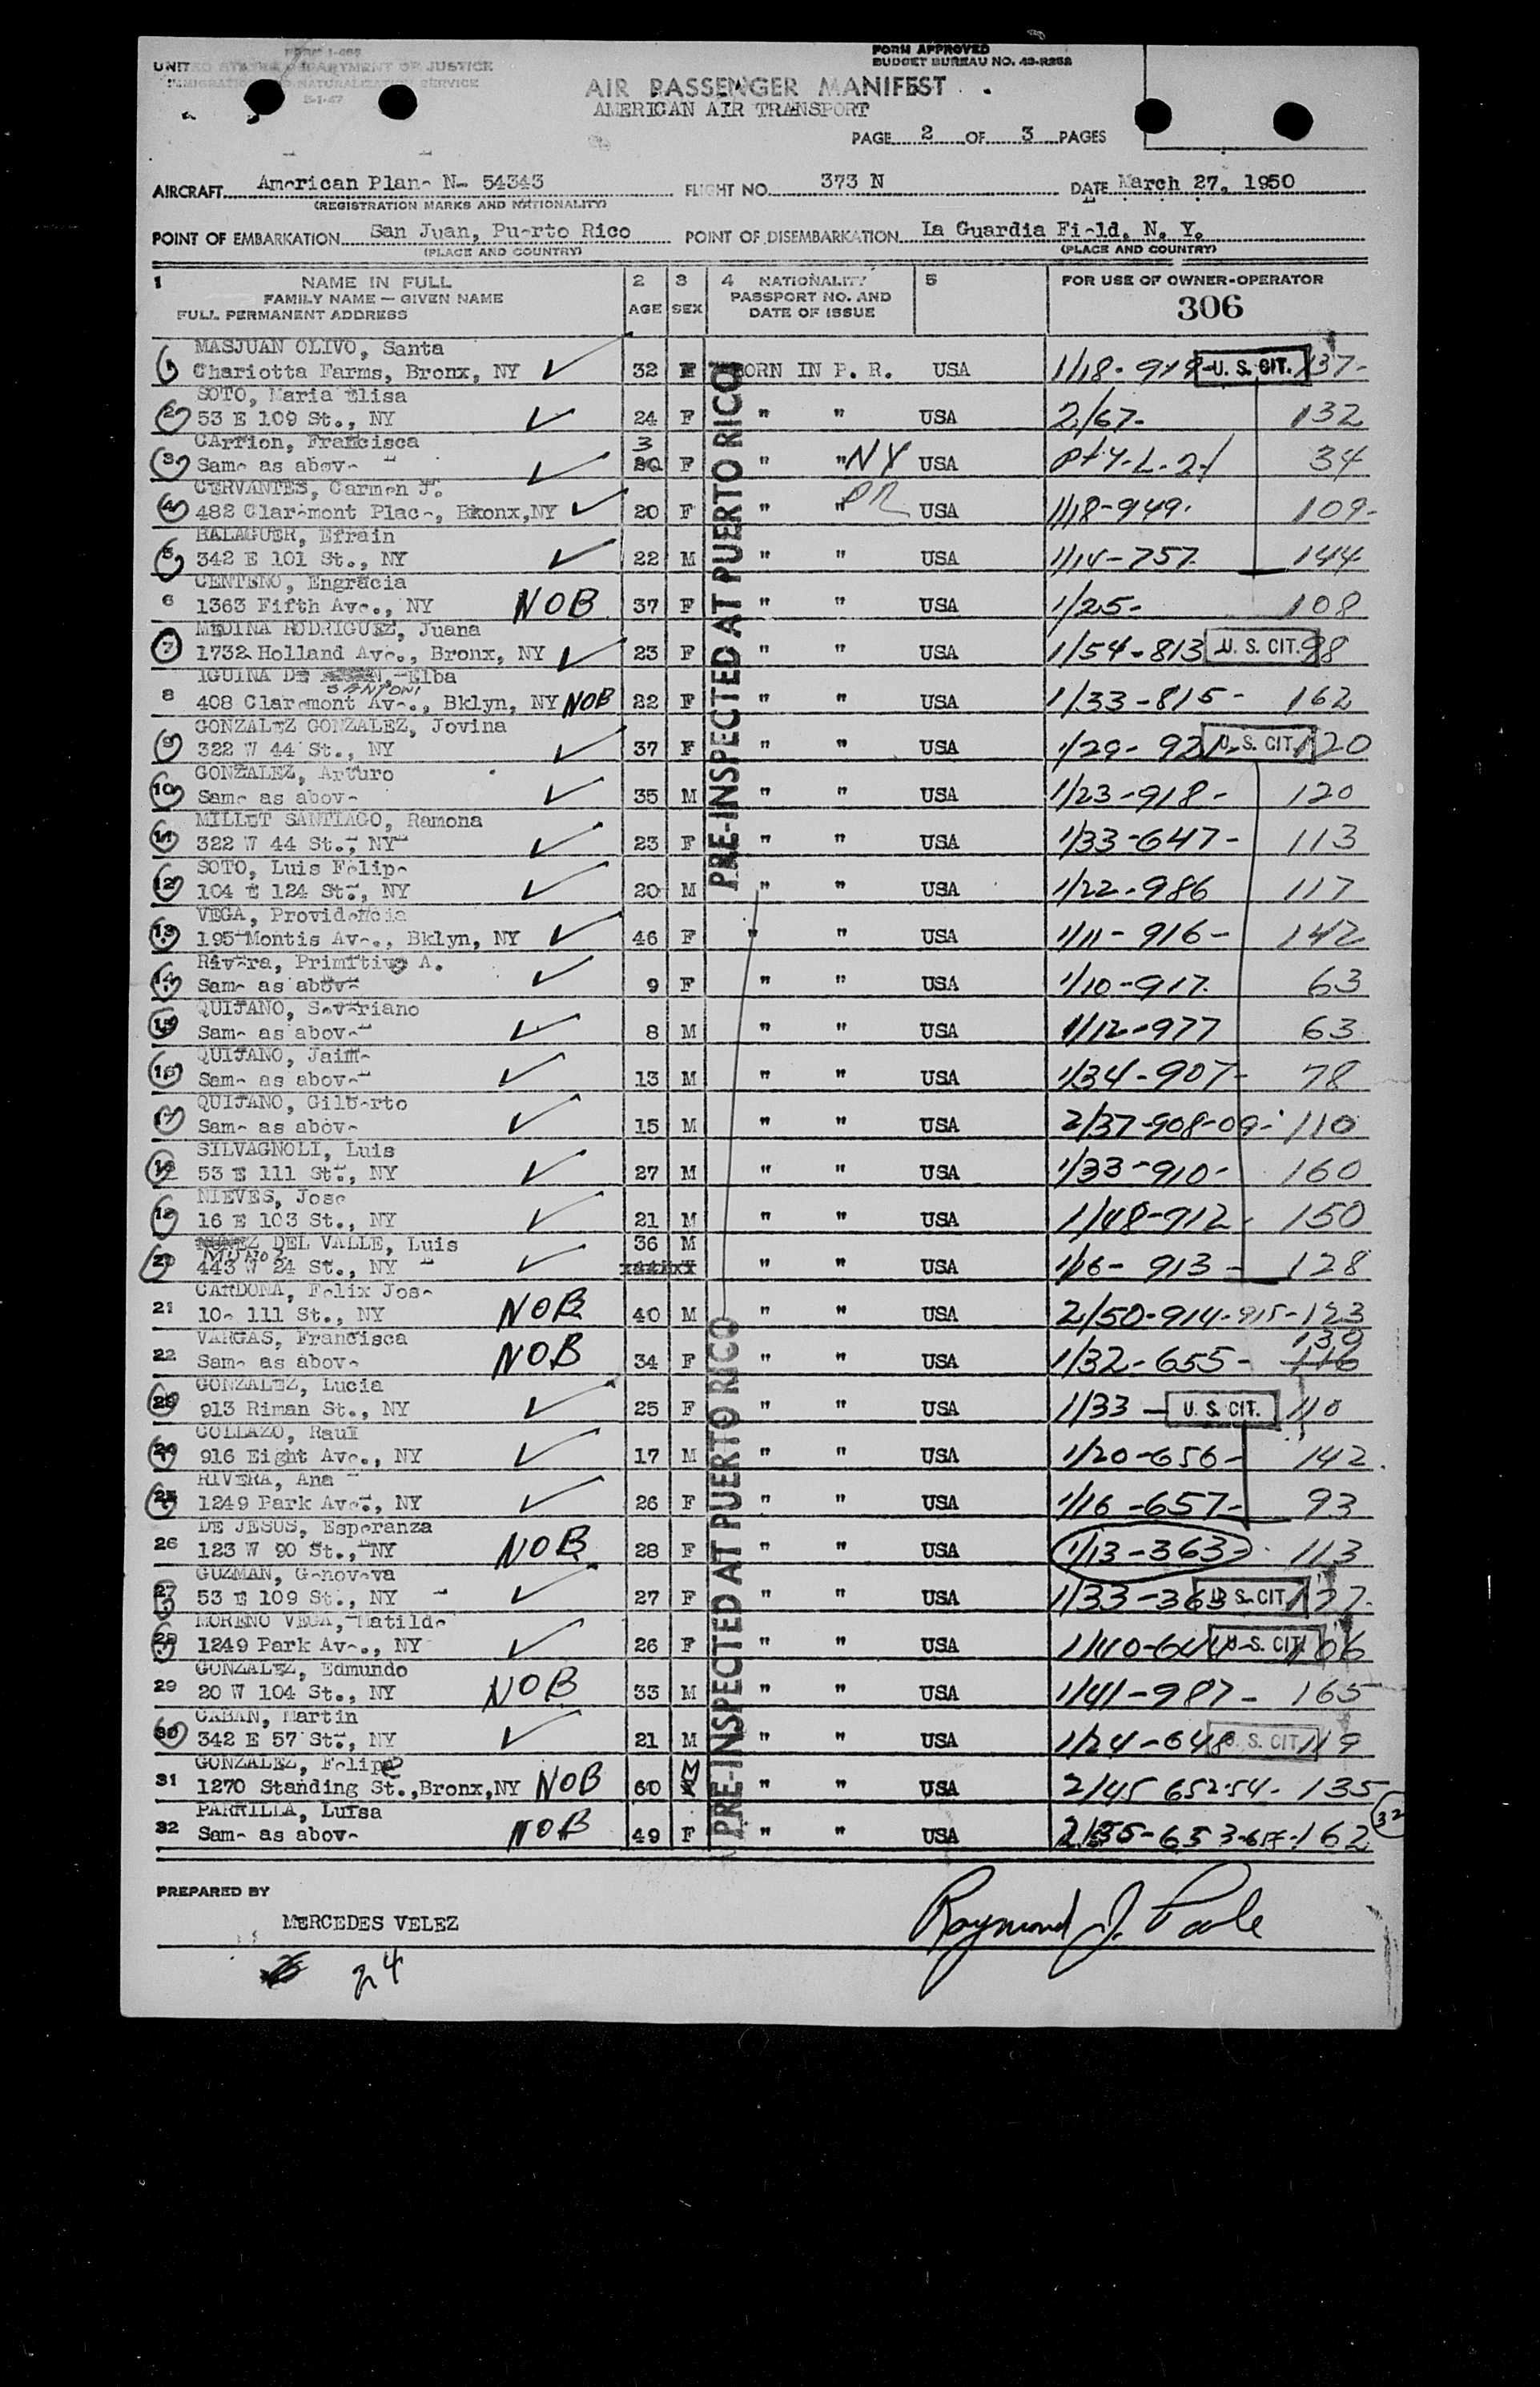 FORM I-466
UNITED STATES DEPARTMENT OF JUSTICE
IMMIGRATION AND NATURALIZATION SERVICE
5-1-47
FORM APPROVED
BUDGET BUREAU NO. 43-R252
AIR PASSENGER MANIFEST
AMERICAN AIR TRANSPORT
PAGE 2 OF 3 PAGES
AIRCRAFT American Plane N- 54343 FLIGHT NO. 373 N DATE March 27, 1950
(REGISTRATION MARKS AND NATIONALITY)
POINT OF EMBARKATION San Juan, Puerto Rico POINT OF DISEMBARKATION La Guardia Field, N. Y.
(PLACE AND COUNTRY) (PLACE AND COUNTRY)
1 NAME IN FULL 2 3 4 NATIONALITY 5 FOR USE OF OWNER-OPERATOR
FAMILY NAME — GIVEN NAME AGE SEX PASSPORT NO. AND 306
FULL PERMANENT ADDRESS DATE OF ISSUE
PRE-INSPECTED AT PUERTO RICO
MASJUAN OLIVO, Santa
Chariotta Farms, Bronx, NY 32 F BORN IN P. R. USA 1/18- U. S. CIT. 137-
SOTO, Maria Elisa
2 53 E 109 St., NY 24 F " " USA 2/67- 132
CArrion, Francisca 3
3 Same as above F " " NY USA 34
CERVANTES, Carmen J. PR
4 482 Claremont Place, Bronx,NY 20 F " " USA 1/18-949. 109-
BALAGUER, Efrain
5 342 E 101 St., NY 22 M " " USA 1/14-757. 144
CENTENO, Engracia
6 1363 Fifth Ave., NY NOB 37 F " " USA 1/25- 108
MEDINA RODRIGUEZ, Juana
7 1732 Holland Ave., Bronx, NY 23 F " " USA 1/54-813 U. S. CIT. 98
IGUINA DE SANTONI, Elba
8 408 Claremont Ave., Bklyn, NY NOB 22 F " " USA 1/33-815- 162
GONZALEZ GONZALEZ, Jovina
9 322 W 44 St., NY 37 F " " USA 1/29-921- U. S. CIT. 120
GONZALEZ, Arturo
10 Same as above 35 M " " USA 1/23-918- 120
MILLET SANTIAGO, Ramona
11 322 W 44 St., NY 23 F " " USA 1/33-647- 113
SOTO, Luis Felipe
12 104 E 124 St., NY 20 M " " USA 1/22-986 117
VEGA, Providencia
13 195 Montis Ave., Bklyn, NY 46 F " " USA 1/11-916- 142
Rivera, Primitivo A.
14 Same as above 9 F " " USA 1/10-917. 63
QUIJANO, Severiano
15 Same as above 8 M " " USA 1/12-977 63
QUIJANO, Jaime
16 Same as above 13 M " " USA 1/34-907- 78
QUIJANO, Gilberto
17 Same as above 15 M " " USA 2/37-908-09- 110
SILVAGNOLI, Luis
18 53 E 111 St., NY 27 M " " USA 1/33-910- 160
NIEVES, Jose
19 16 E 103 St., NY 21 M " " USA 1/48-912. 150
MUNOZ DEL VALLE, Luis 36 M
20 443 W 24 St., NY " " USA 1/16-913- 128
CARDONA, Felix Jose
21 10e 111 St., NY NOB 40 M " " USA 2/50-914-915-123
VARGAS, Francisca 139
22 Same as above NOB 34 F " " USA 1/32-655- 116
GONZALEZ, Lucia
23 913 Riman St., NY 25 F " " USA 1/33- U. S. CIT. 110
COLLAZO, Raul
24 916 Eight Ave., NY 17 M " " USA 1/20-656- 142.
RIVERA, Ana
25 1249 Park Ave., NY 26 F " " USA 1/16-657- 93
DE JESUS, Esperanza
26 123 W 90 St., NY NOB 28 F " " USA 1/13-363 113
GUZMAN, Genoveva
27 53 E 109 St., NY 27 F " " USA 1/33- U. S. CIT. 137-
MORENO VEGA, Matilde
28 1249 Park Ave., NY 26 F " " USA 1/40- U. S. CIT. 106
GONZALEZ, Edmundo
29 20 W 104 St., NY NOB 33 M " " USA 1/41-987- 165
CABAN, Martin
30 342 E 57 St., NY 21 M " " USA 1/24-648 U. S. CIT. 119
GONZALEZ, Felipe
31 1270 Standing St.,Bronx,NY NOB 60 M " " USA 2/45 652-54- 135
PARRILLA, Luisa
32 Same as above NOB 49 F " " USA 162 32
PRE-INSPECTED AT PUERTO RICO
PREPARED BY
MERCEDES VELEZ Raymond J. Poole
24